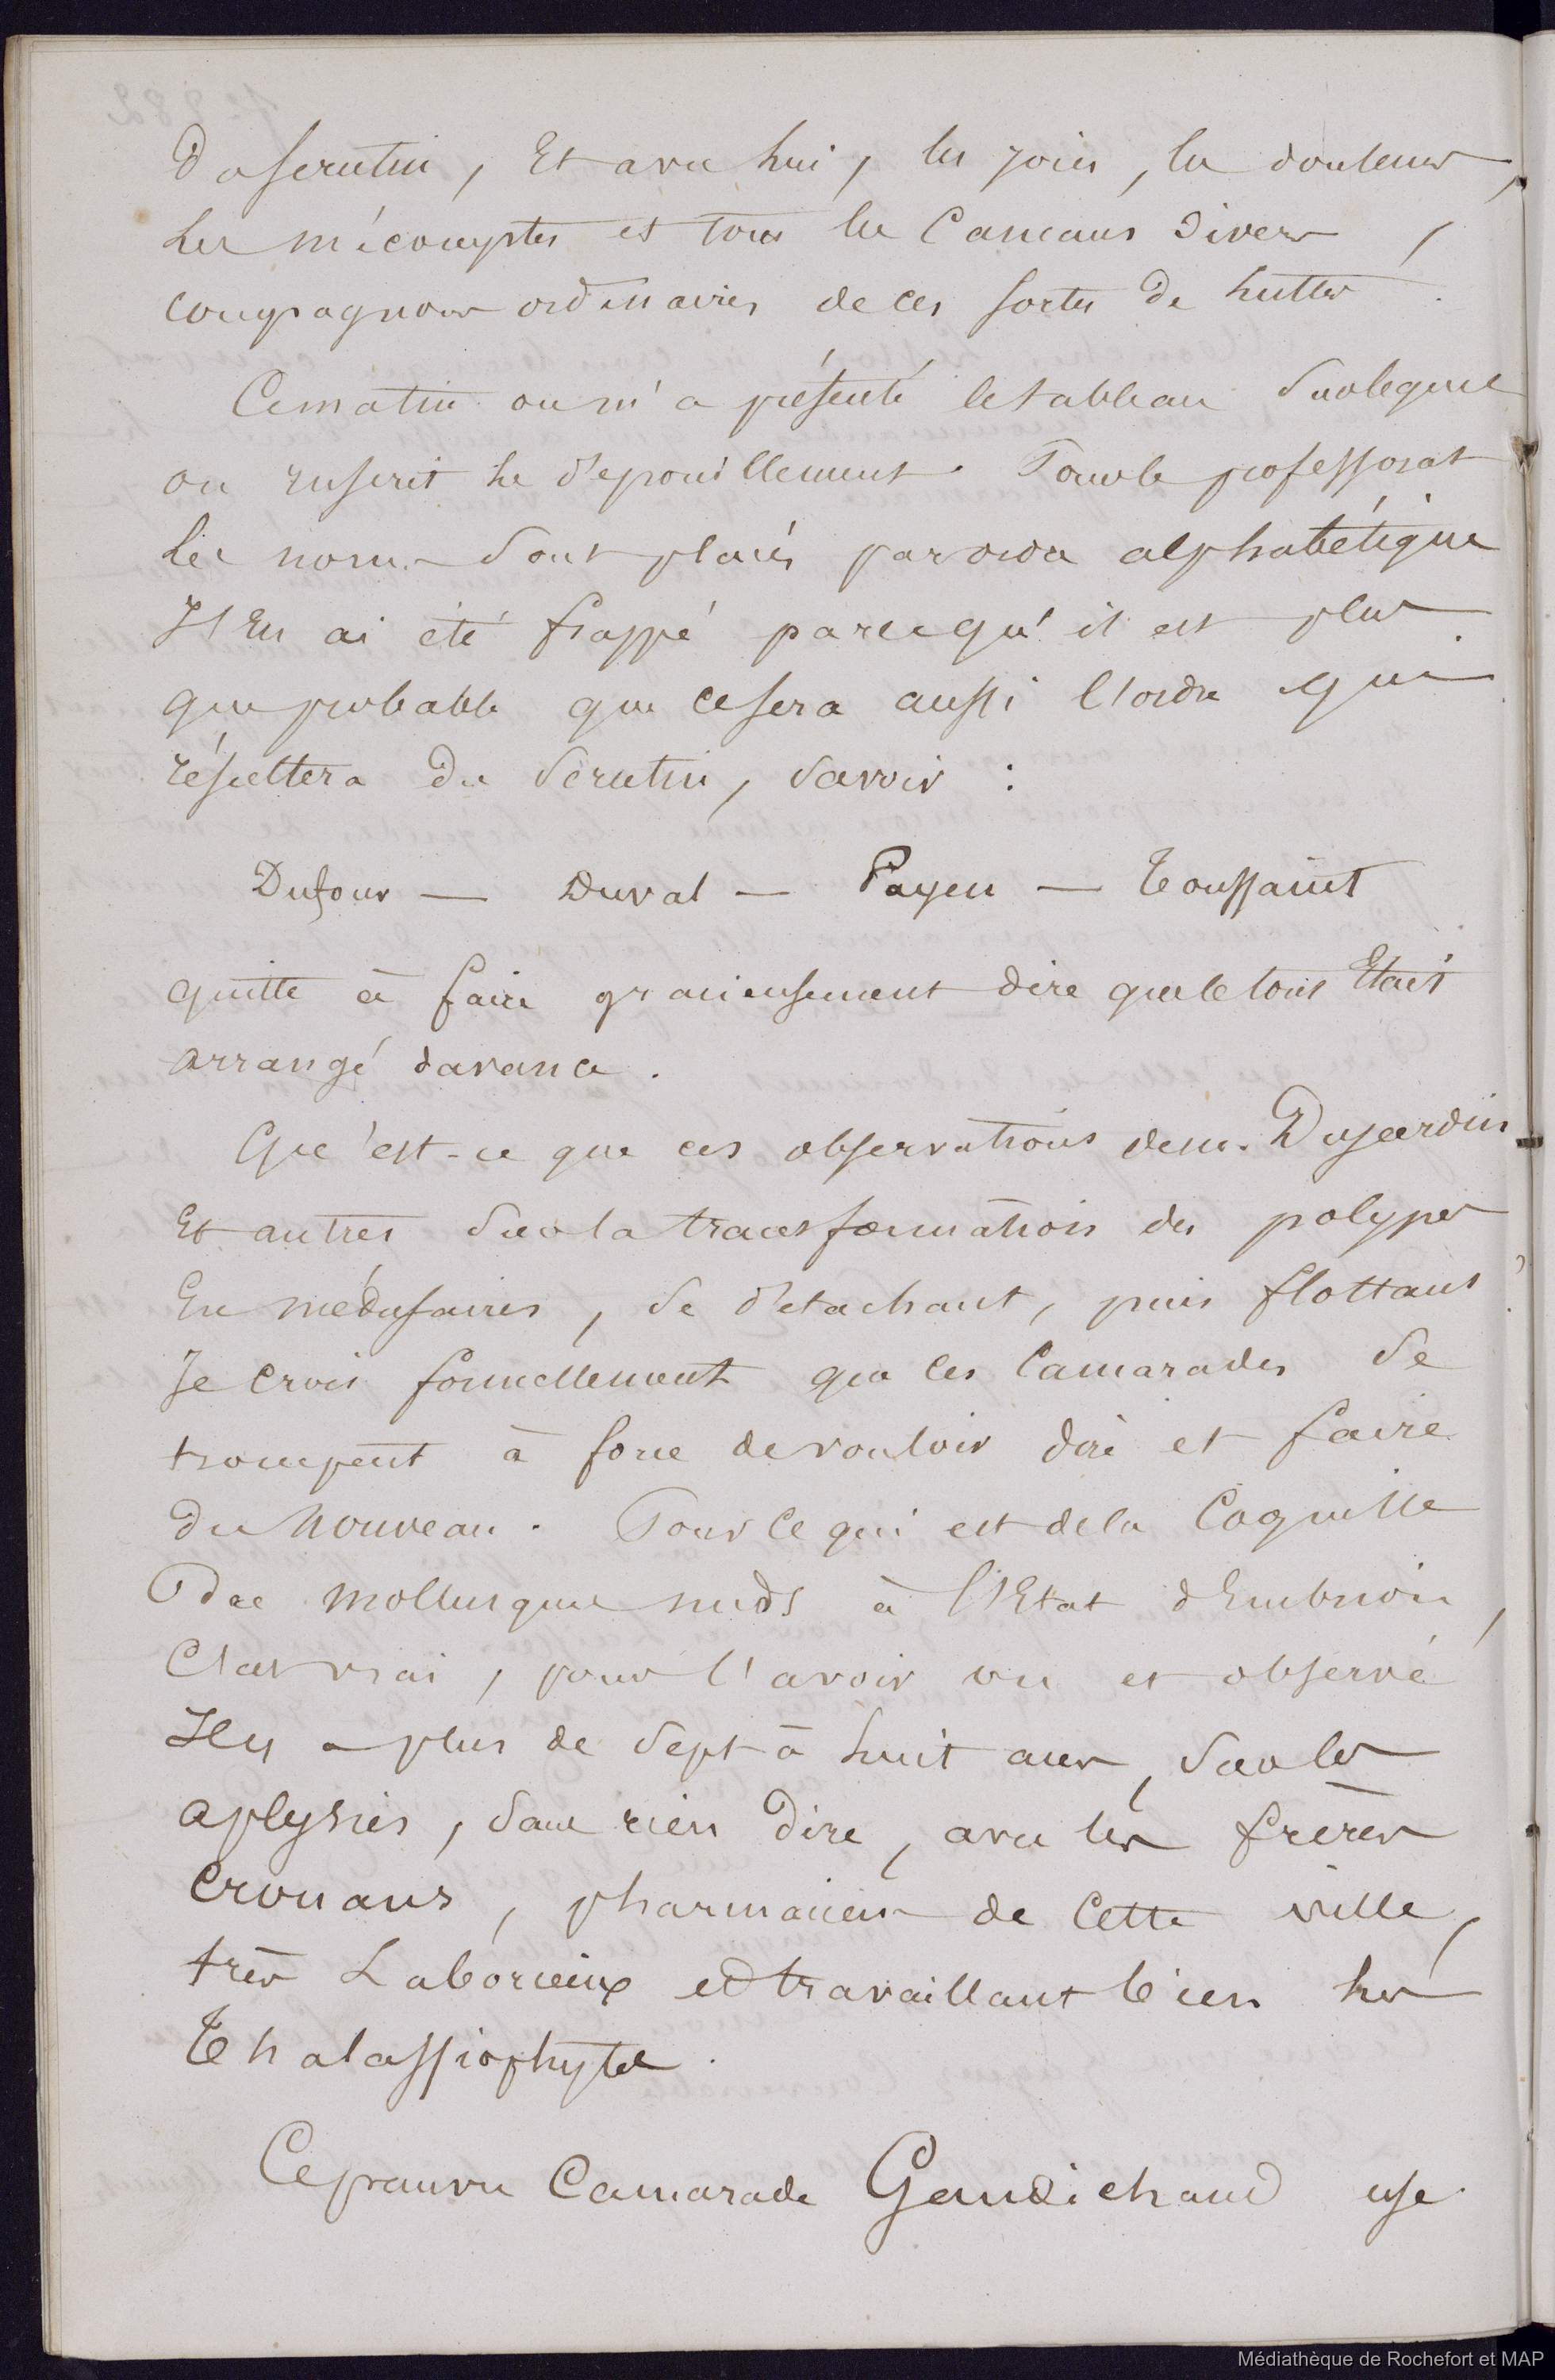 du scrutin, Et avec lui, les joies, les douleurs,
les mécomptes et tous les Cancans divers,
compagnons ordinaires de ces sortes de luttes.
Ce matin on m'a présenté le tableau sur lequel
on inscrit le dépouillement. Pour le professorat
les noms sont placés par ordre alphabétique
J'En ai été frappé parcequ'il est plus
que probable que ce sera aussi l'ordre qui
résultera du Scrutin, savoir :
Dufour — Duval — Payen — Toussaint
quitte à faire gracieusement dire que le tout Etait
arrangé davance.
Qu'est-ce que ces observations de m. Dujardin
Et autres sur la transformation des polypes
En médusaires, se détachant, puis flottant ?
Je crois formellement que les Camarades se
trompent à force de vouloir dire et faire
du nouveau. Pour ce qui est de la Coquille
des mollusques nuds à l'Etat d'Embrion,
C'est vrai, pour l'avoir vu et observé
Il y a plus de sept à huit ans, sur les
aplysies, sans rien dire, avec les frères
Crouans, pharmaciens de Cette ville,
très Laborieux et travaillant bien les
Thalassiophytes.
Ce pauvre Camarade Gaudichaud use
Médiathèque de Rochefort et MAP